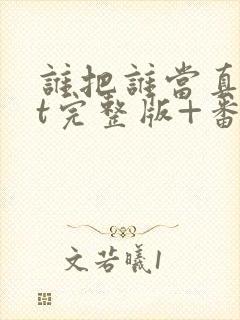 誰把誰當真
t完整版+番
文若曦1